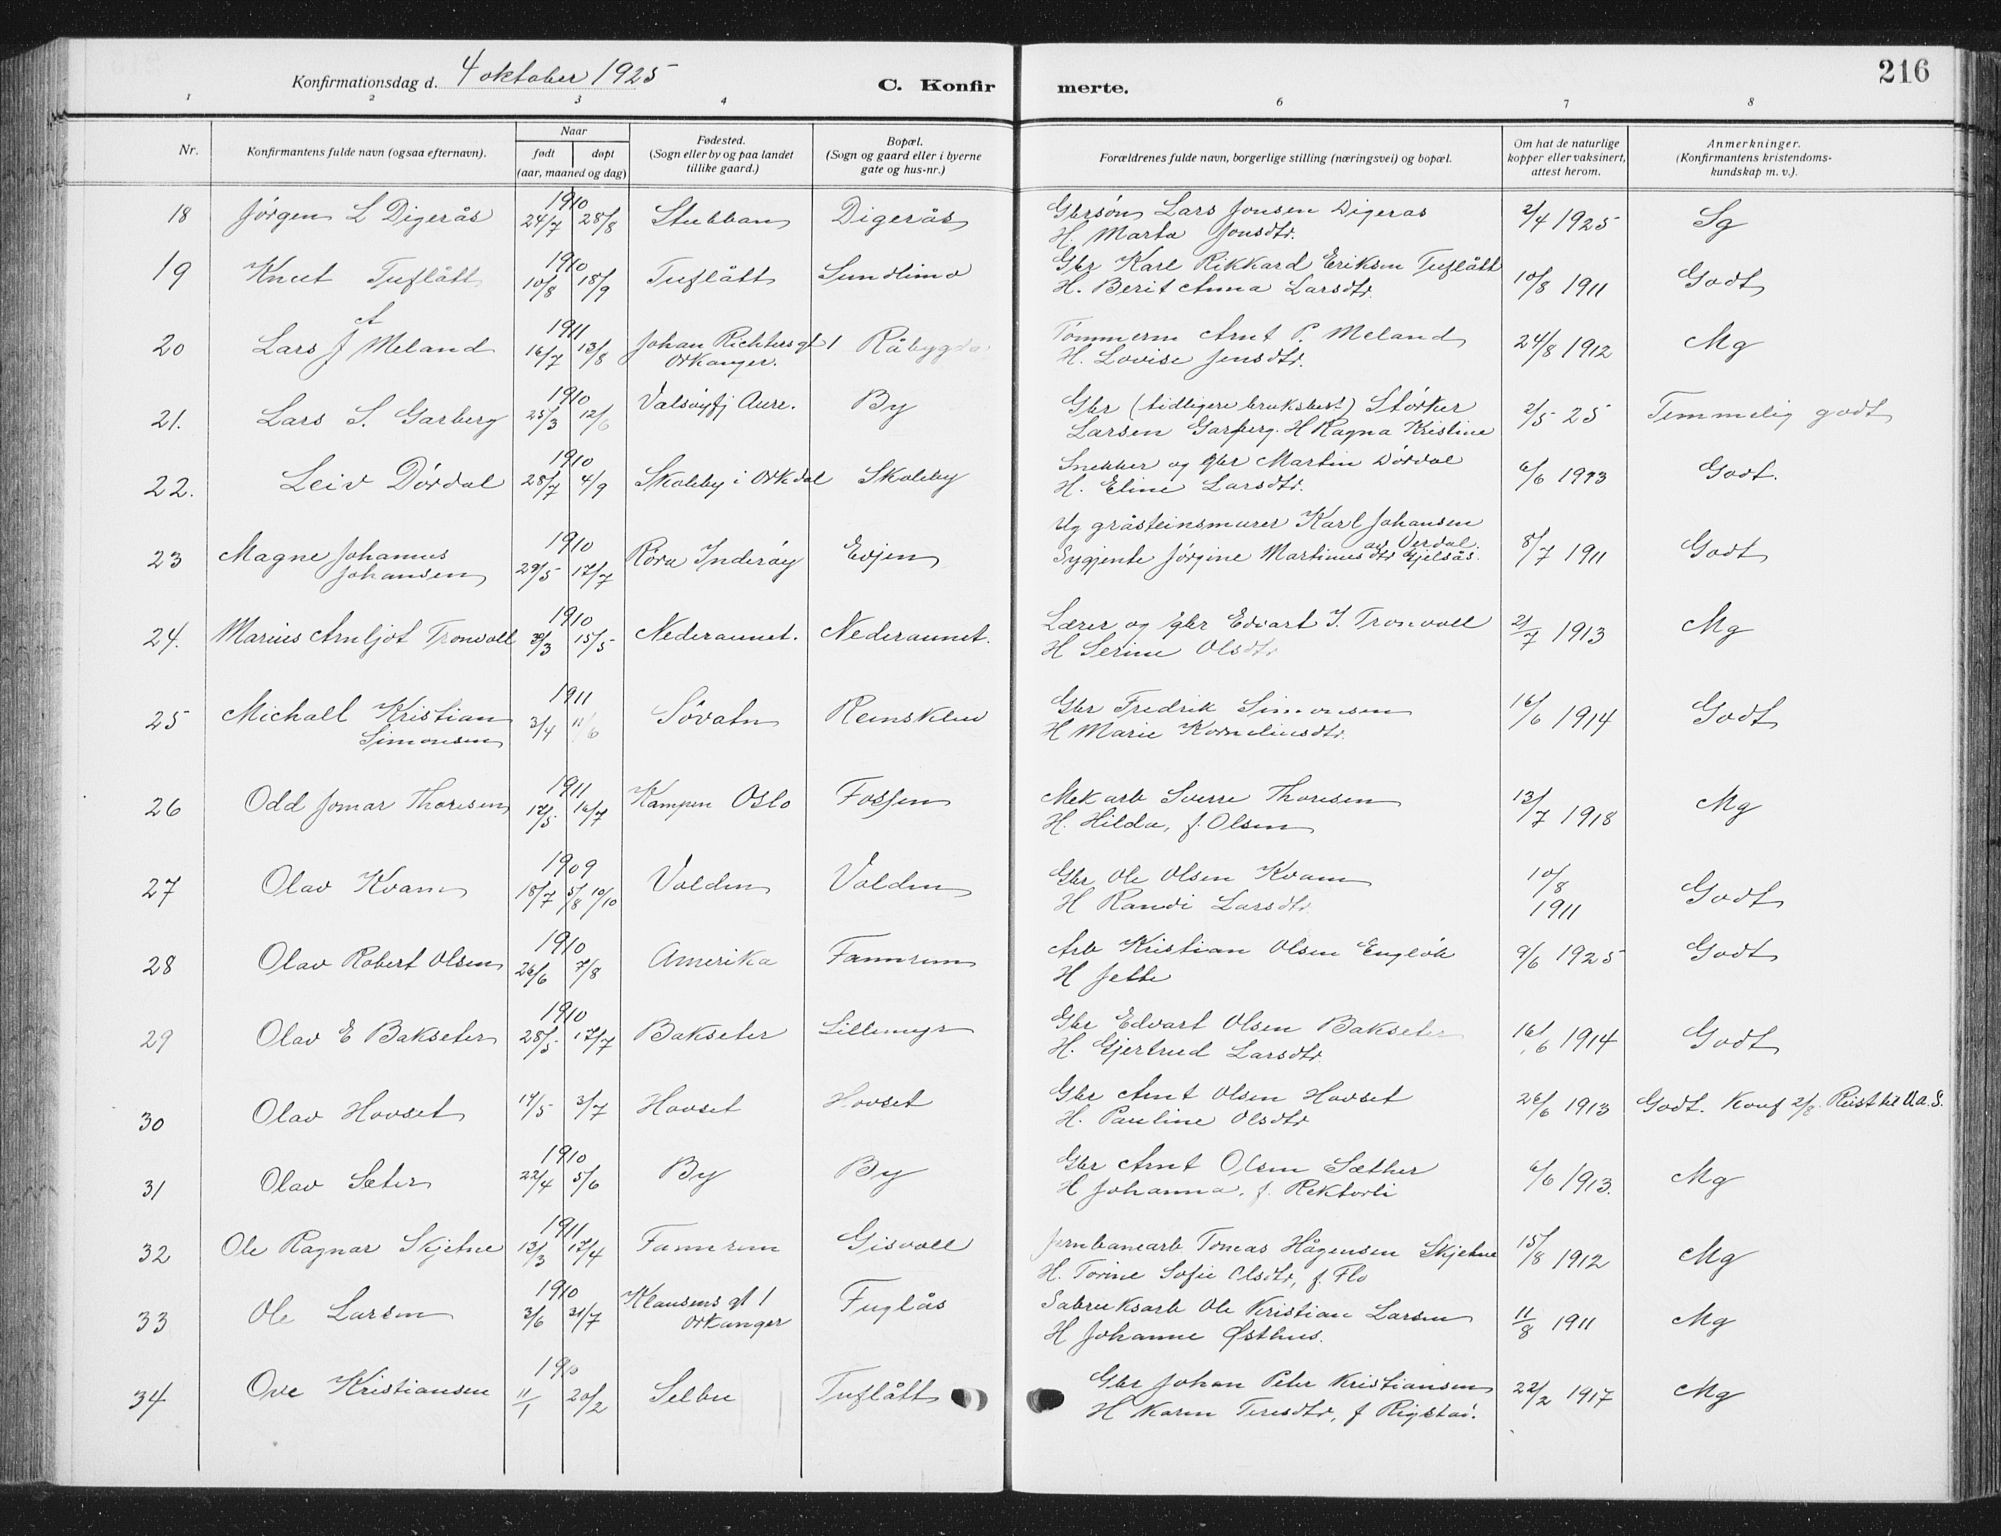 216
Konfirmationsdag d. 4 oktober 1925
C. Konfirmerte.
1 2 3 4 6 7 8
Nr.
Konfirmantens fulde navn (ogsaa efternavn).
Naar
født døpt
(aar, maaned og dag)
Fødested.
(Sogn eller by og paa landet
tillike gaard.)
Bopæl.
(Sogn og gaard eller i byerne
gate og hus-nr.)
Forældrenes fulde navn, borgerlige stilling (næringsvei) og bopæl.
Om hat de naturlige
kopper eller vaksinert,
attest herom.
Anmerkninger.
(Konfirmantens kristendoms-
kundskap m. v.).
1910
18 Jørgen L Digerås 24/7 28/8 Stubban Digerås Gbrsøn Lars Jonsen Digeras 2/4 1925 Sg
H. Marta Jonsdtr.
1910
19 Knut Tuflått 10/8 18/9 Tuflått Sundlimo Gbr Karl Rikkard Eriksen Tuflått 10/8 1911 Godt
H. Berit Anna Larsdtr
1911
20 Lars A J Meland 16/7 13/8 Johan Richters gt 1 Råbygda Tømmerm Arnt P. Meland 24/8 1912 Mg
Orkanger. H. Lovise Jensdtr.
1910
21. Lars S. Garberg 25/3 12/6 Valsøyfj Aure. By Gbr (tidligere bruksbest) Størker 2/5 25 Temmelig godt
Larsen Garberg. H Ragna Kristine
1910
22. Leiv Dørdal 28/7 4/9 Skolby i Orkdal Skolby Snekker og gbr Martin Dørdal 6/6 1913 Godt.
H. Eline Larsdtr.
1910
23 Magne Johannes Johansen 29/5 17/7 Røra Inderøy Evjen Ug gråsteinsmurer Karl Johansen av Verdal. 8/7 1911 Godt
Sygjente Jørgine Martinusdtr Gjelsås.
1910
24. Marius Arnljot Tronvoll 30/3 15/5 Nederaunet. Nederaunet. Lærer og gbr Edvart I. Tronvoll 21/7 1913 Mg
H Serine Olsdtr
1911
25 Michall Kristian Simonsen 3/4 11/6 Søvatn Reinsklev Gbr Fredrik Simonsen 16/6 1914 Godt
H Marie Korneliusdtr.
1911
26 Odd Jomar Thoresen 17/5 16/7 Kampen Oslo Fossen Mek arb Sverre Thoresen 13/7 1918 Mg
H. Hilda, f. Olsen
1909
27 Olav Kvam 18/7 5/8 10/10 Volden Volden Gbr Ole Olsen Kvam 10/8 1911 Godt
H Randi Larsdtr.
1910
28 Olav Robert Olsen 26/6 7/8 Amerika Fannrem Arb Kristian Olsen Engløk 9/6 1925 Godt
H Jette
1910
29 Olav E Bakseter 28/5 17/7 Bakseter Lillemyr Gbr Edvart Olsen Bakseter 16/6 1914 Godt
H. Gjertrud Larsdtr.
30 Olav Hovset 14/5 3/7 Hovset Hovset Gbr Arnt Olsen Hovset 26/6 1913 Godt. Konf 2/8. Reist til U.a.S.
H. Pauline Olsdtr
1910
31 Olav Sæter 22/4 5/6 By By Gbr Arnt Olsen Sæther 6/6 1913. Mg
H Johanna, f. Rektorli
1911
32 Ole Ragnar Skjetne 13/3 17/4 Fannrem Gisvoll Jernbanearb Tomas Hågensen Skjetne 15/8 1912 Mg
H. Torine Sofie Olsdtr, f. Flo
1910
33 Ole Larsen 3/6 31/7 Klausens gt 1 Orkanger Fuglås Sabruksarb Ole Kristian Larsen 11/8 1911 Mg
H Johanne Østhus.
1910
34 Ove Kristiansen 11/1 20/2 Selbu Tuflått Gbr Johan Peter Kristiansen 22/2 1917 Mg
H Karen Teresdtr, f Rigstad.